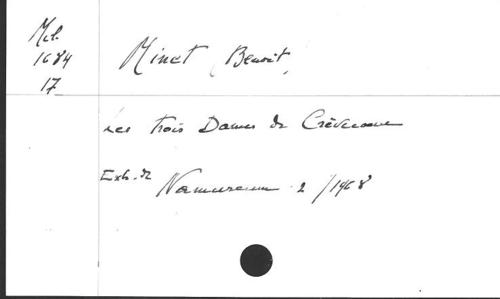 Mél.
1684
17
Minet (Benoît)
Les trois Dames de Crèvecoeur
Extr. de Namurcum 2/1968